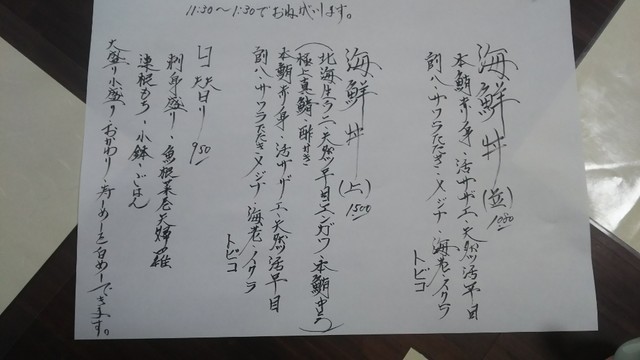 11:30～1:30でおねがいします。
海鮮丼(並)1080
本鮪赤り身・活サザエ・天然活平目
・サワラたたき・メジナ・海老・イクラ
トビコ
海鮮丼(上)1500
(北海生ウニ・天然平目エンガワ・本鮪中とろ
極上真鯖・酢かき)
本鮪赤り身・活サザエ・天然活平目
・サワラたたき・メジナ・海老・イクラ
トビコ
日替り 950
刺身盛り・魚根菜老天婦羅
蓮根もち・小鉢・ごはん
大盛り小盛り・おかわり・寿めしを白めしできます。